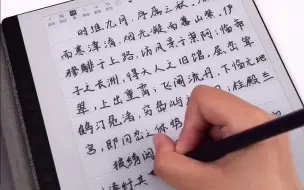 时维九月，序属三秋。
而寒潭清，烟光凝而暮山紫。俨
骖騑于上路，访风景于崇阿；临帝
子之长洲，得天人之旧馆。层峦耸
翠，上出重霄；飞阁流丹，下临无地
鹤汀凫渚，穷岛屿桂殿兰
宫，即冈峦之体势
披绣闼
泽纡其